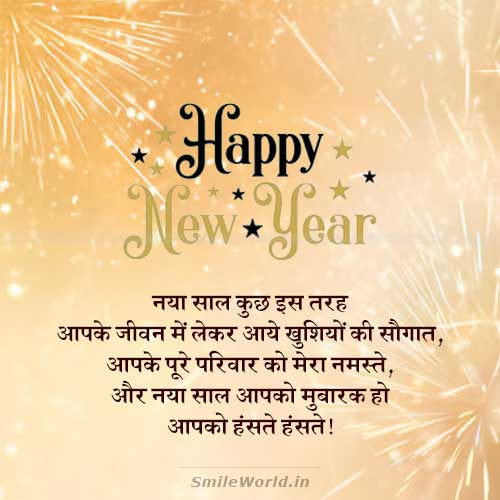 Happy
New Year
नया साल कुछ इस तरह
आपके जीवन में लेकर आये खुशियों की सौगात,
आपके पूरे परिवार को मेरा नमस्ते,
और नया साल आपको मुबारक हो
आपको हंसते हंसते!
SmileWorld.in